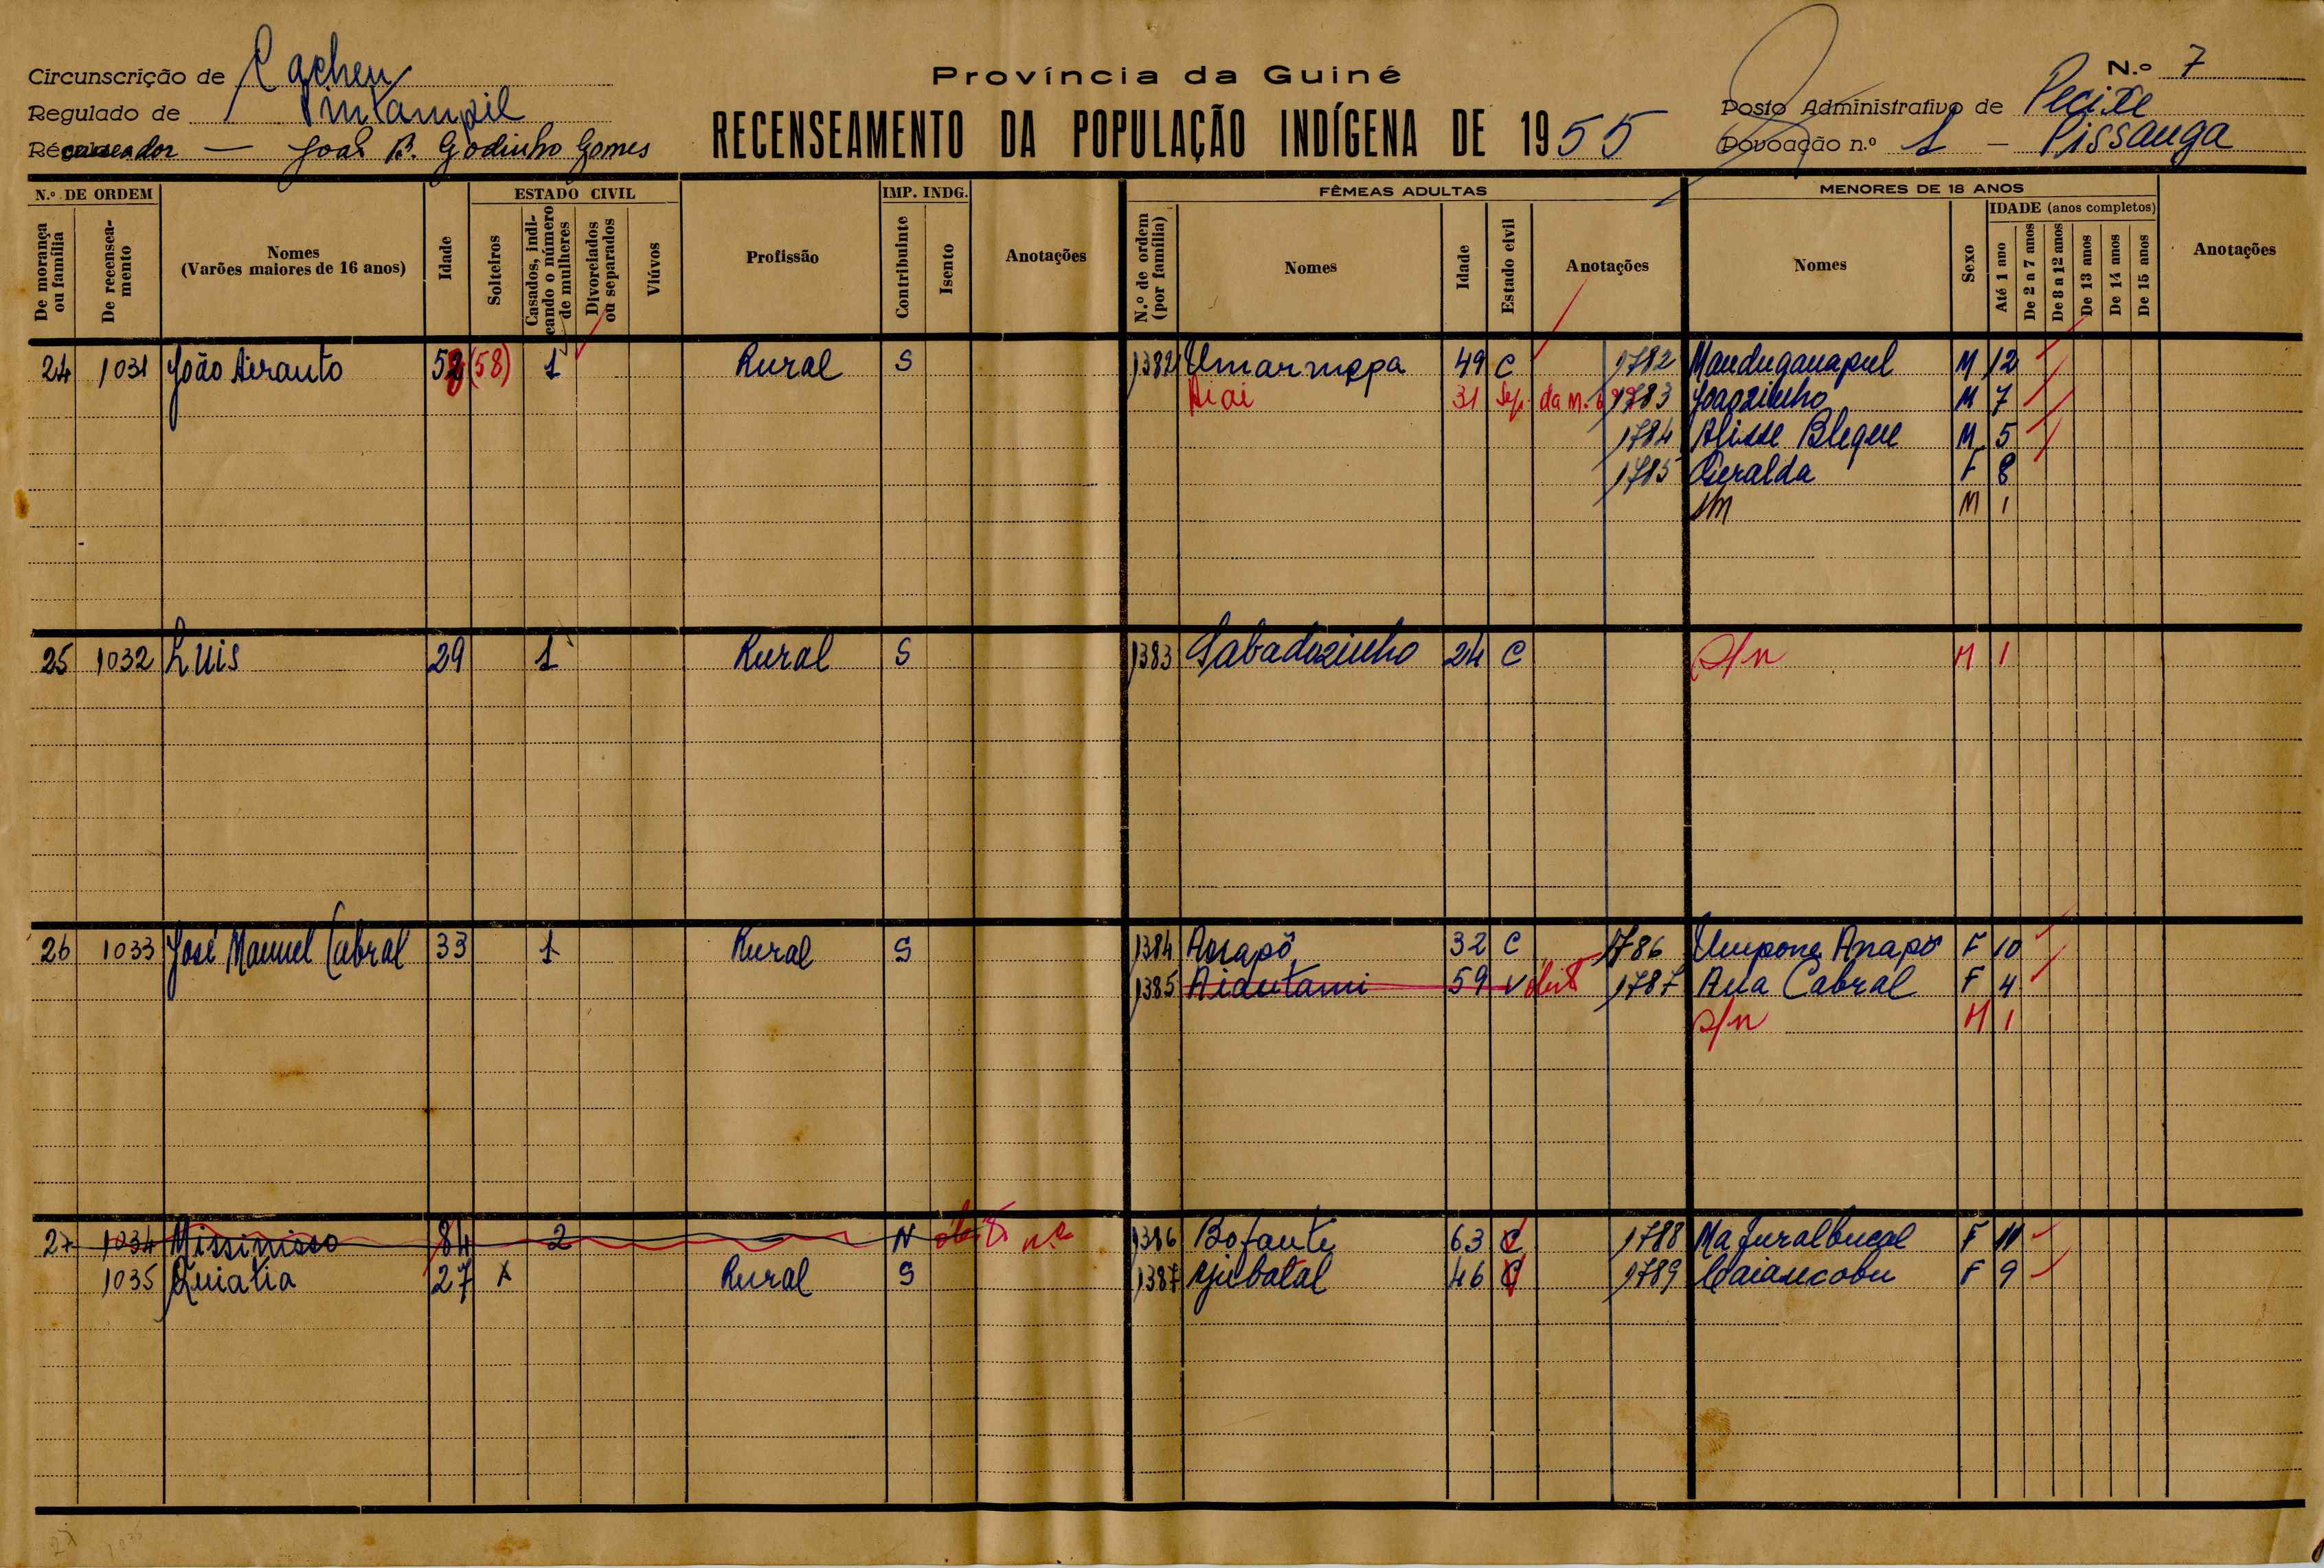 Circunscrição de Cacheu
Província da Guiné
N.º 7
Regulado de Pintampil
RECENSEAMENTO DA POPULAÇÃO INDÍGENA DE 1955
Posto Administrativo de Pecixe
Recenseador — João B. Godinho Gomes
Povoação n.º 1 — Pissanga
N.º DE ORDEM
De morança ou família
De recenseamento
Nomes
(Varões maiores de 16 anos)
Idade
ESTADO CIVIL
Solteiros
Casados, indicando o número de mulheres
Divorciados ou separados
Viúvos
Profissão
IMP. INDG.
Contribuinte
Isento
Anotações
FÊMEAS ADULTAS
N.º de ordem (por família)
Nomes
Idade
Estado civil
Anotações
MENORES DE 18 ANOS
Nomes
Sexo
IDADE (anos completos)
Até 1 ano
De 2 a 7 anos
De 8 a 12 anos
De 13 anos
De 14 anos
De 15 anos
Anotações
24 1031 João (58) 1 Rural S 1382 49 C 1782 Manduganapul M 12
Aiai 31 Sep. da m. 1783 Joaozinho M 7
1784 Alisse Blegue M 5
1785 Geralda F 8
s/n M 1
25 1032 Luis 29 1 Rural S 1383 Sabadozinho 24 C s/n M 1
26 1033 José Manuel Cabral 33 1 Rural S 1384 Anapô 32 C 1786 Umpone Anapô F 10
1385 Aidutami 59 V óbito 1787 Ana Cabral F 4
s/n M 1
27 1034 Missinisso 84 2 N óbito 1386 Bofante 63 C 1788 Mafuralbucal F 11
1035 Quiatia 27 x Rural S 1387 46 C 1789 Caiancobu F 9